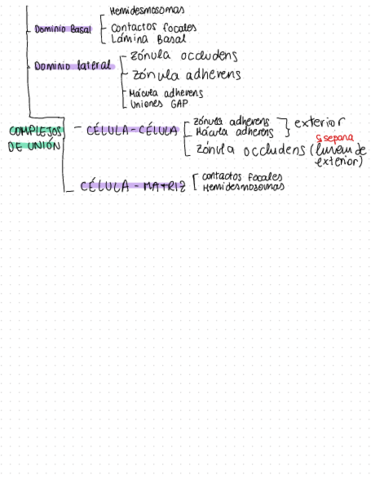 Hemidesmosomas
Dominio Basal
Contactos focales
Lámina Basal
Dominio lateral
Zónula occludens
Zónula adherens
Mácula adherens
Uniones GAP
COMPLEJOS
DE UNIÓN
- CÉLULA-CÉLULA
Zónula adherens
Mácula adherens
exterior
Zónula occludens (lumen de
separa
exterior)
CÉLULA - MATRIZ
contactos focales
Hemidesmosomas